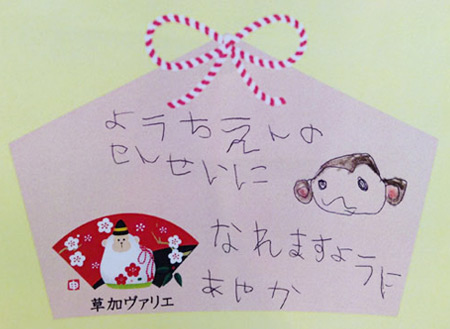 ようちえんの
せんせいに
なれますように
あやか
申
草加ヴァリエ